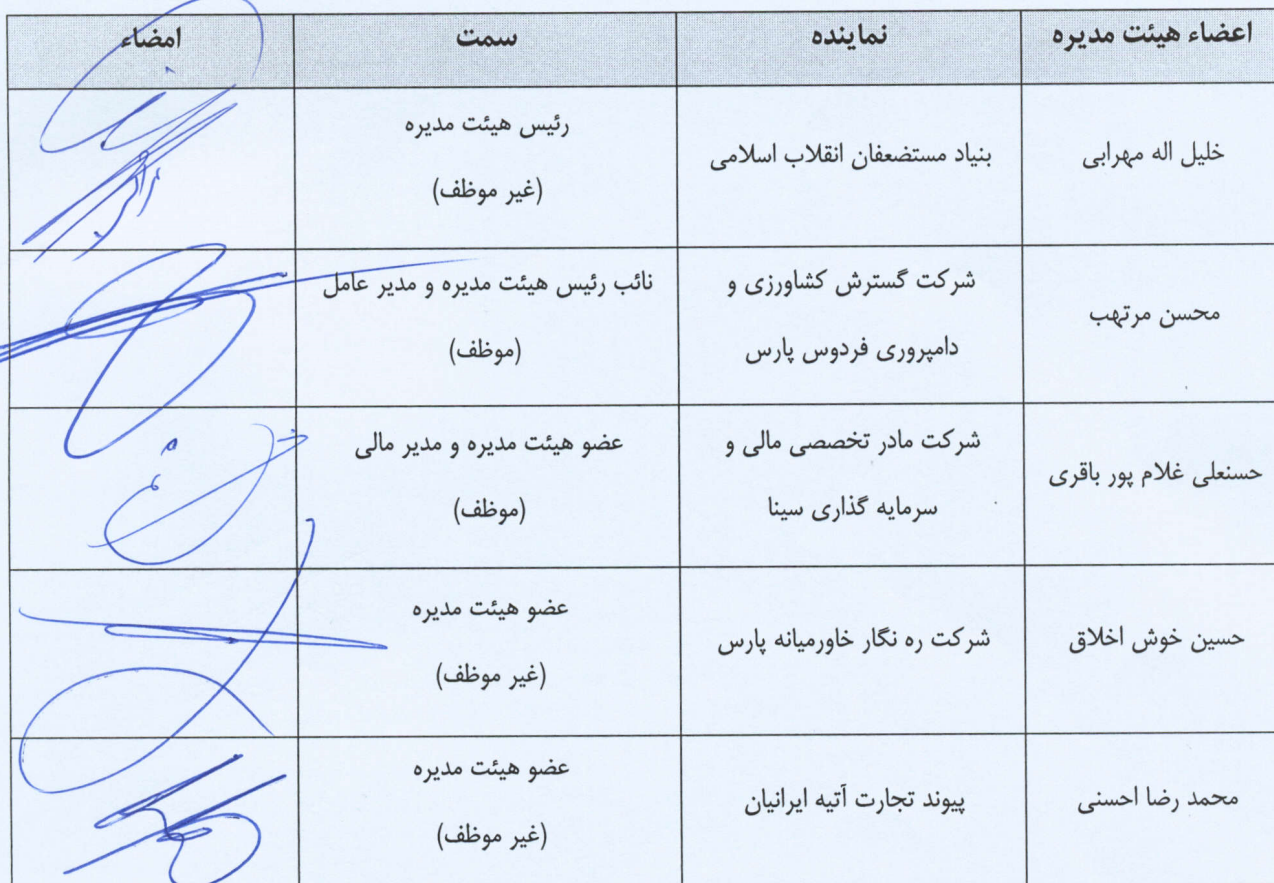 اعضاء هیئت مدیره نماینده سمت امضاء
خلیل اله مهرابی بنیاد مستضعفان انقلاب اسلامی رئیس هیئت مدیره
(غیر موظف)
محسن مرتهب شرکت گسترش کشاورزی و نائب رئیس هیئت مدیره و مدیر عامل
دامپروری فردوس پارس (موظف)
حسنعلی غلام پور باقری شرکت مادر تخصصی مالی و عضو هیئت مدیره و مدیر مالی
سرمایه گذاری سینا (موظف)
حسین خوش اخلاق شرکت ره نگار خاورمیانه پارس عضو هیئت مدیره
(غیر موظف)
محمد رضا احسنی پیوند تجارت آتیه ایرانیان عضو هیئت مدیره
(غیر موظف)